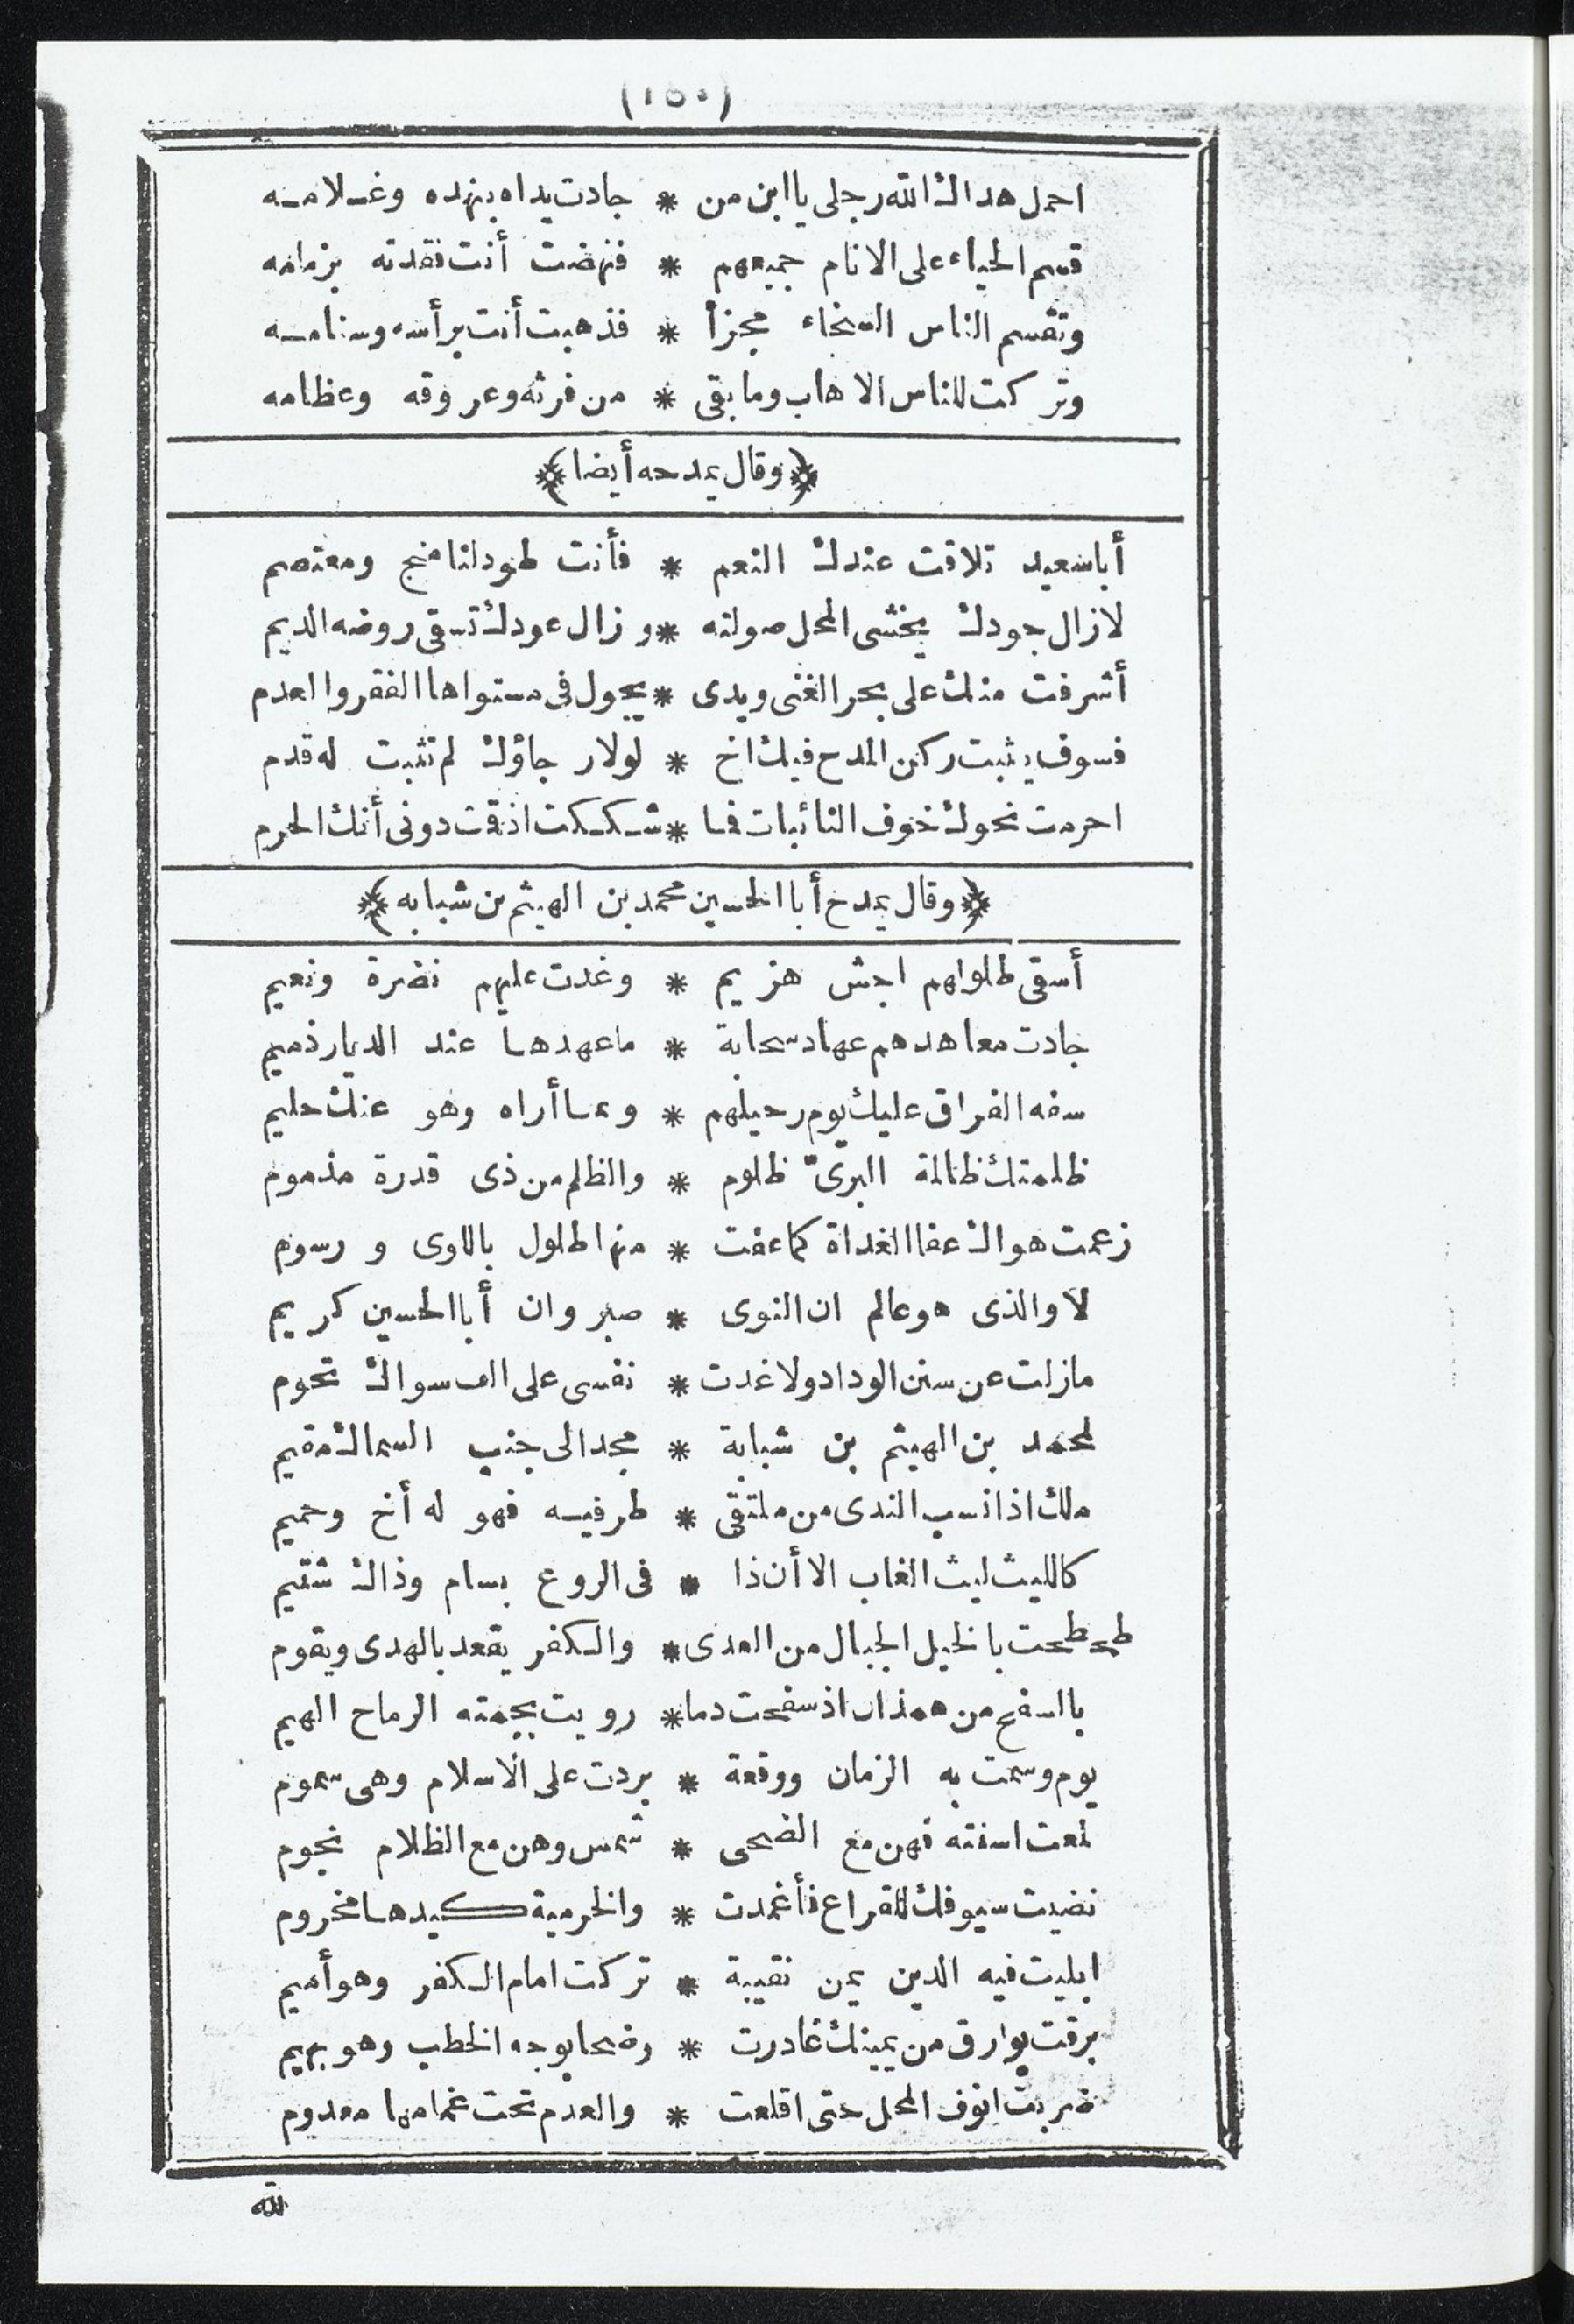 (١٥٠)
احمل هداك الله رجلى يا ابن من * جادت يداه بنهده وغلامه
قسم الحياء على الانام جميعهم * فنهضت أنت نقدته بزمامه
وتقسم الناس السخاء مجزأ * فذهبت أنت برأسه وسنامه
وتركت للناس الاهاب وما بقى * من فرثه وعروقه وعظامه
﴿وقال يمدحه أيضا﴾
أبا سعيد تلاقت عندك النعم * فأنت طود لنا منج ومعتصم
لازال جودك يخشى المحل صولته * وزال عودك تسقى روضه الديم
أشرفت منك على بحر الغنى ويدى * يجول فى مستواها الفقر والعدم
فسوف يثبت ركن المدح فيك اخ * لولا رجاؤك لم تثبت له قدم
احرمت نحوك خوف النائبات فما * شككت اذ قت دونى أنك الحرم
﴿وقال يمدح أبا الحسين محمد بن الهيثم بن شبابه﴾
أسقى طلولهم اجش هزيم * وغدت عليهم نضرة ونعيم
جادت معاهدهم عهاد سحابة * ما عهدها عند الديار ذميم
سفه الفراق عليك يوم رحيلهم * وبما أراه وهو عنك حليم
ظلمتك ظالمة البرىّ ظلوم * والظلم من ذى قدرة مذموم
زعمت هواك عفا الغداة كما عفت * منها طلول باللوى ورسوم
لا والذى هو عالم ان النوى * صبر وان أبا الحسين كريم
مازلت عن سنن الوداد ولا غدت * نفسى على الف سواك تحوم
لمحمد بن الهيثم بن شبابة * مجد الى جنب السماك مقيم
ملك اذا نسب الندى من ملتقى * طرفيه فهو له أخ وحميم
كالليث ليث الغاب الا أن ذا * فى الروع بسام وذاك شتيم
طحطحت بالخيل الجبال من العدى * والكفر يقعد بالهدى ويقوم
بالسفح من همذان اذ سفحت دما * رويت بجمته الرماح الهيم
يوم وسمت به الزمان ووقعة * بردت على الاسلام وهى سموم
لمعت اسنته فهن مع الضحى * شمس وهن مع الظلام نجوم
نضيت سيوفك للقراع فأغمدت * والخرمية كيدها مخروم
ابليت فيه الدين يمن نقيبة * تركت امام الكفر وهو أميم
برقت بوارق من يمينك غادرت * وضحا بوجه الخطب وهو بهيم
ضربت انوف المحل حتى اقلعت * والعدم تحت غمامها معدوم
لله